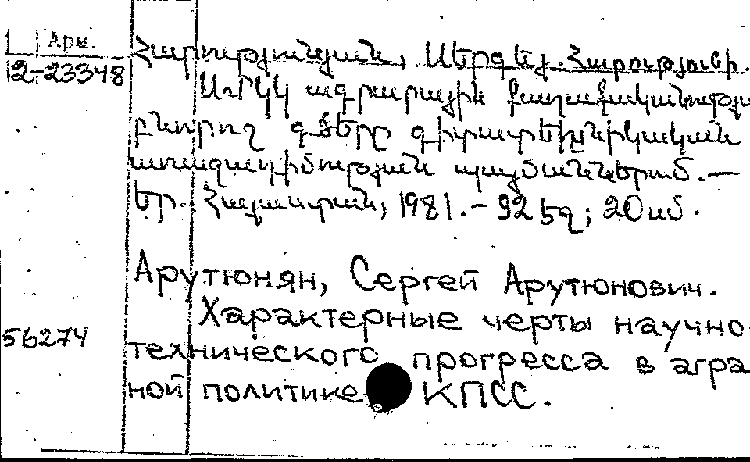 Арм.
12-23348
Հարությունյան, Սերգեյ Հարությունի.
ՍՄԿԿ ագրարային քաղաքականությա
բնորոշ գծերը գիտատեխնիկական
առաջադիմության պայմաններում. —
Եր. Հայաստան, 1981. - 92 էջ; 20 սմ.
Арутюнян, Сергей Арутюнович.
Характерные черты научно-
56274
технического прогресса в агра
ной политике КПСС.